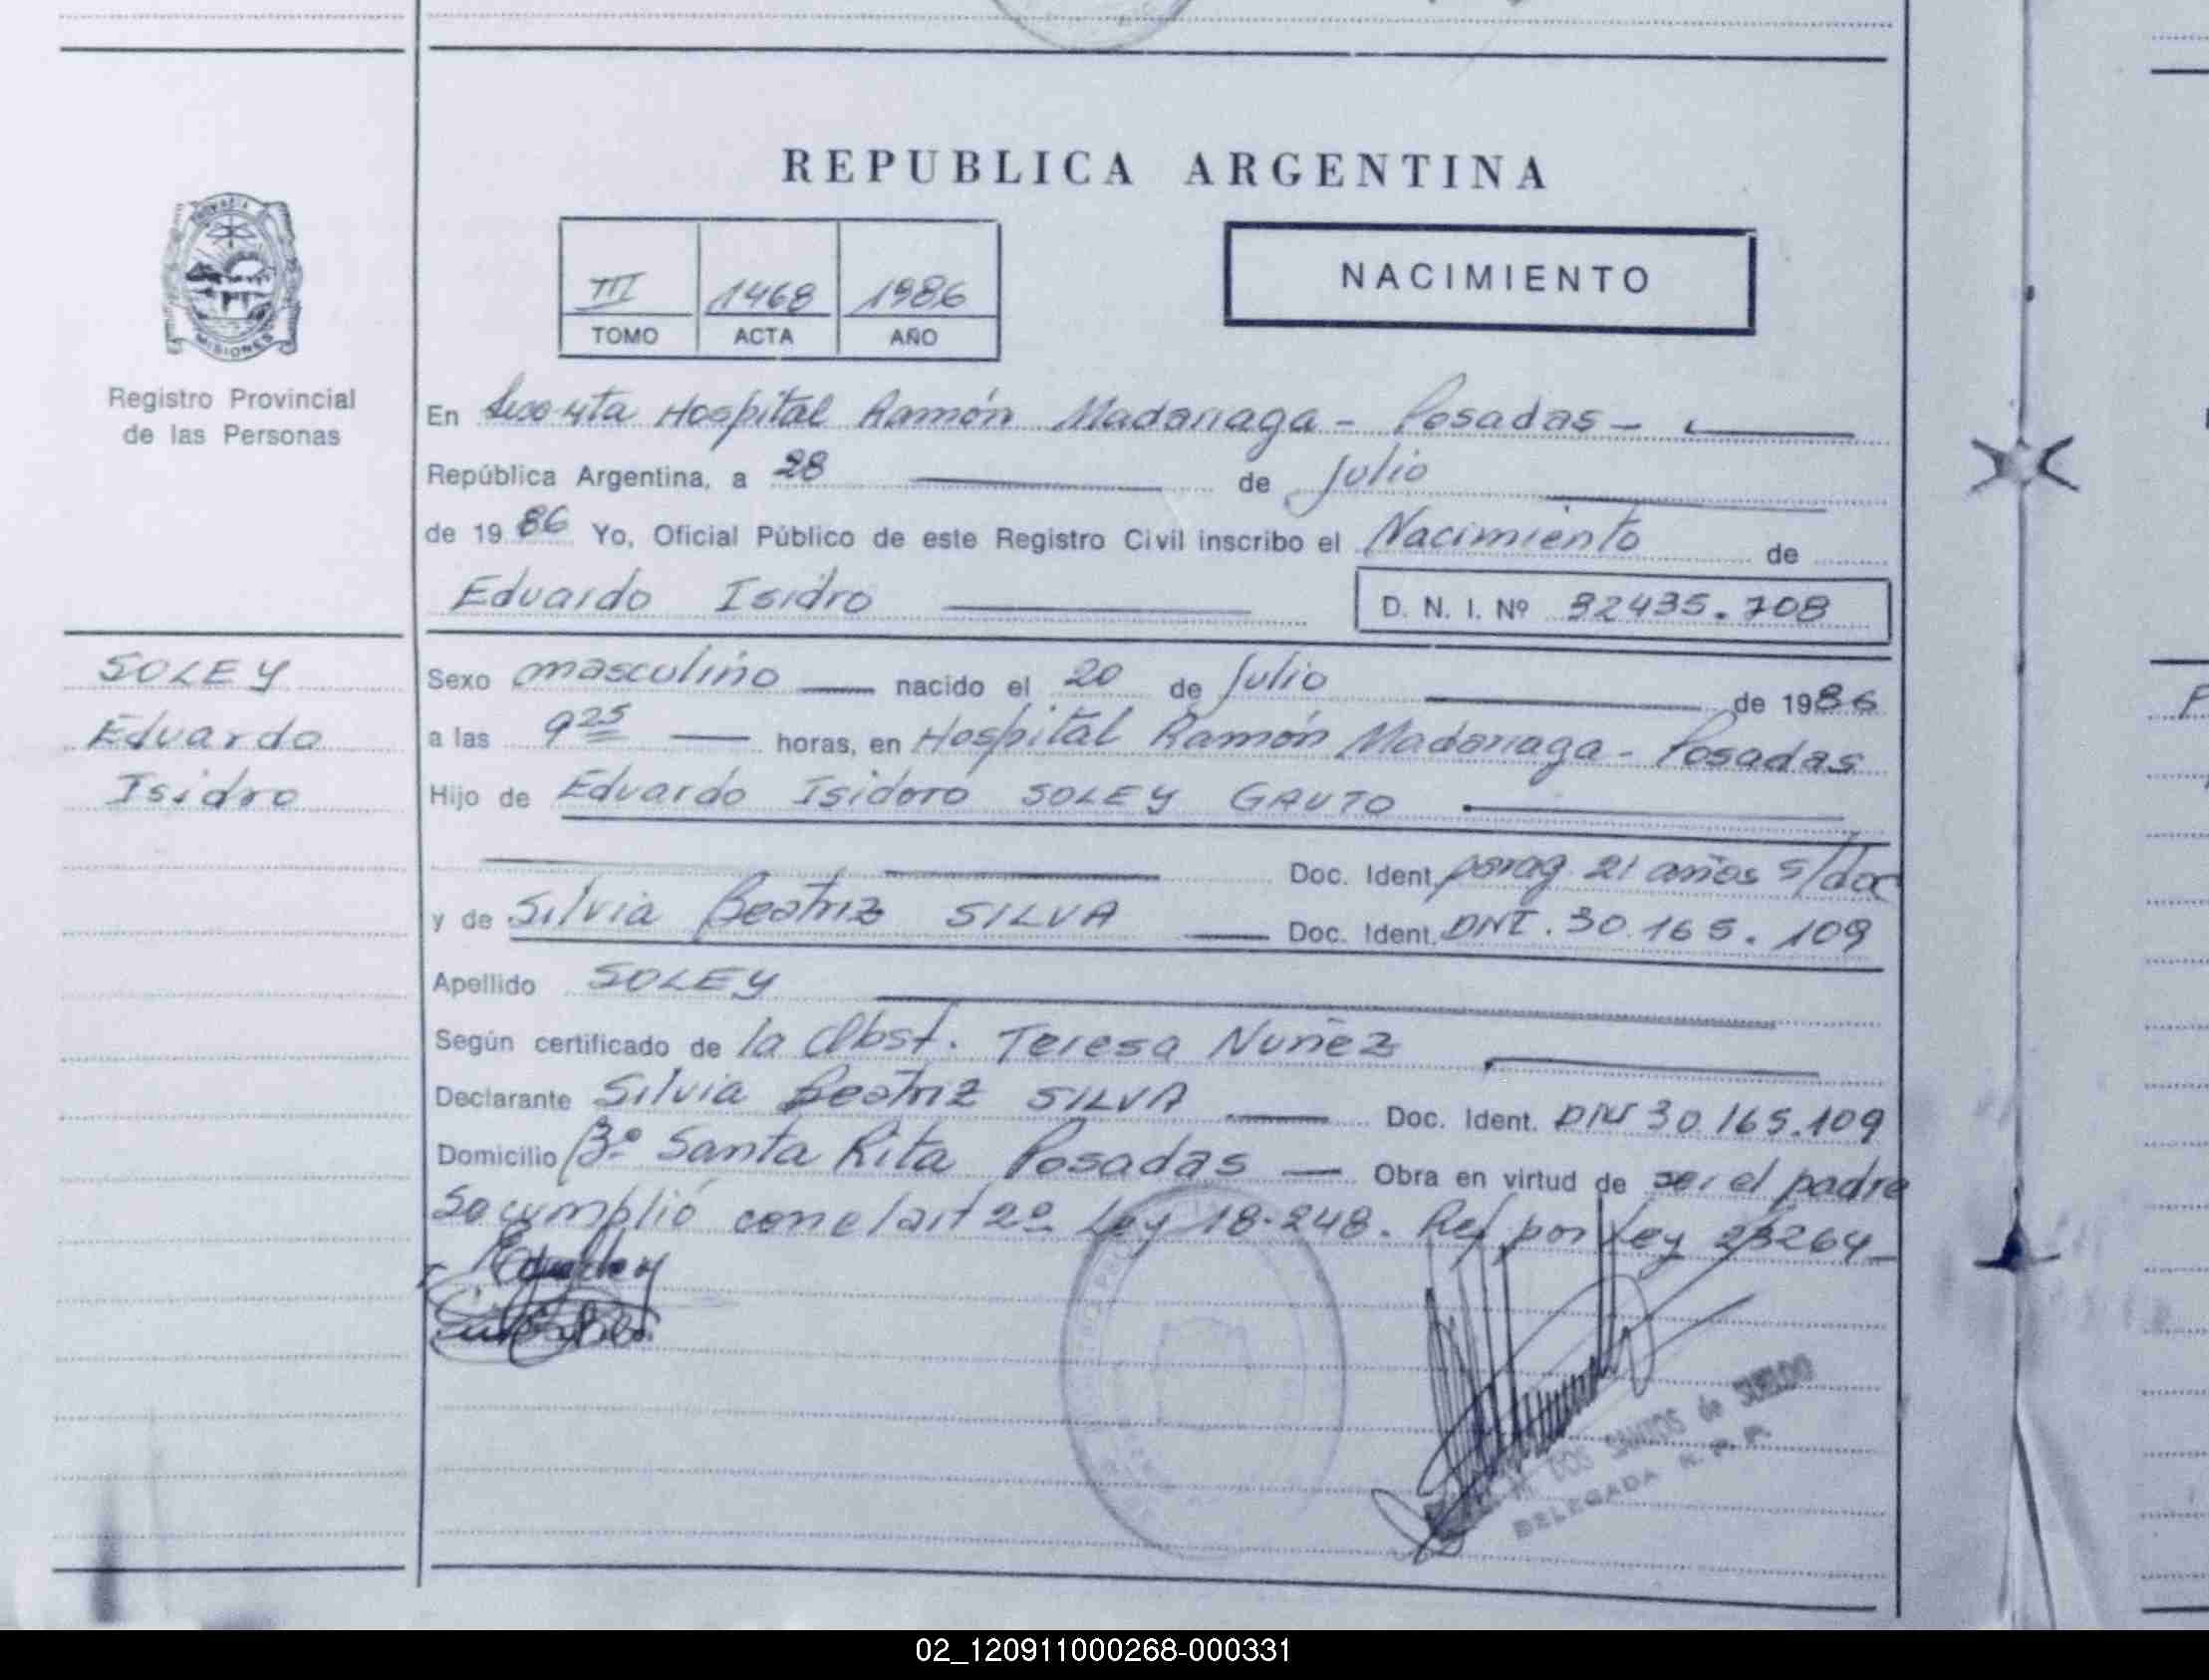 REPUBLICA ARGENTINA
PROVINCIA
MISIONES
Registro Provincial
de las Personas
III 1468 1986
TOMO ACTA AÑO
NACIMIENTO
En Hospital Ramón Madariaga - Posadas -
República Argentina, a 28 de Julio
de 1986 Yo, Oficial Público de este Registro Civil inscribo el Nacimiento de
Eduardo Isidro D. N. I. Nº 32435.708
SOLEY
Eduardo
Isidro
Sexo masculino nacido el 20 de Julio de 1986
a las 9 25 horas, en Hospital Ramón Madariaga - Posadas
Hijo de Eduardo Isidoro SOLEY GAUTO
Doc. Ident. parag. 21 años s/doc
y de Silvia Beatriz SILVA Doc. Ident. DNI. 30.165.109
Apellido SOLEY
Según certificado de la Obst. Teresa Nuñez
Declarante Silvia Beatriz SILVA Doc. Ident. DNI 30.165.109
Domicilio Bº Santa Rita Posadas Obra en virtud de ser el padre
Se cumplió con el art 2º Ley 18.248. Ref por Ley 23264
DOS SANTOS de SUELDO
DELEGADA R. P. P.
02_120911000268-000331